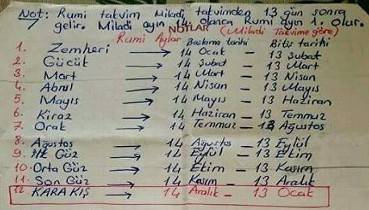 Not: Rumi takvim Miladi takvimden 13 gün sonra
gelir. Miladi ayın 14. olanca Rumi ayın 1. olur.
NOTLAR
Rumi Aylar Başlama tarihi (Miladi Takvime göre) Bitiş tarihi
1. Zemheri → 14 Ocak - 13 Şubat
2. Gücük → 14 Şubat - 13 Mart
3. Mart → 14 Mart - 13 Nisan
4. Abrul → 14 Nisan - 13 Mayıs
5. Mayıs → 14 Mayıs - 13 Haziran
6. Kiraz → 14 Haziran - 13 Temmuz
7. Orak → 14 Temmuz - 13 Ağustos
8. Ağustos → 14 Ağustos - 13 Eylül
9. İlk Güz → 14 Eylül - 13 Ekim
10. Orta Güz → 14 Ekim - 13 Kasım
11. Son Güz → 14 Kasım - 13 Aralık
12. KARAKIŞ → 14 Aralık - 13 Ocak